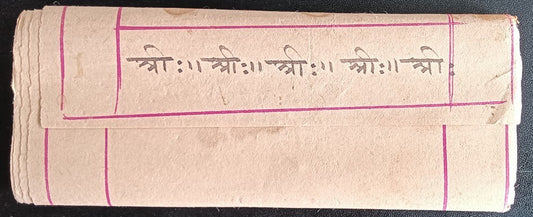 श्रीः।। श्रीः।। श्रीः।। श्रीः।। श्रीः